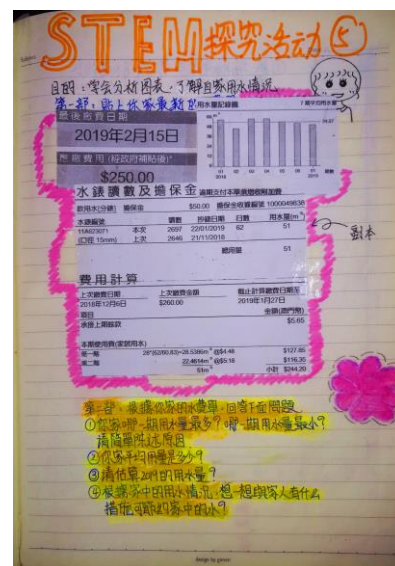 STEM探究活动⑤
目的：学会分析图表，了解自家用水情况
第一部：贴上你家最新的
用水量記錄備
7 期平均用水量
最後繳費日期
2019年2月15日
應繳費用(經政府補貼後)*
$250.00
水錶讀數及擔保金 逾期支付本單須繳附加費
飲用水[分錶] 擔保金 $50.00 擔保金收費編號 1000049838
水錶編號 讀數 抄錶日期 日數 用水量(m³)
11A623071 本次 2697 22/01/2019 62 51
(口徑 15mm) 上次 2646 21/11/2018
總用量 51
副本
費用計算
上次繳費日期 上次繳費金額 截止計算繳費日期至
2018年12月6日 $260.00 2019年1月27日
項目 金額(澳門幣)
承接上期餘款 $5.65
本期使用費(家居用水)
第一階 28*(62/60.83)=28.5386m³ @$4.48 $127.85
第二階 22.4614m³ @$5.18 $116.35
51m³ 小計 $244.20
第二部：根据你家的水费单，回答下面问题
①你家哪一期用水量最多？哪一期用水量最小？
请简单陈述原因
②你家平均用量是多少？
③请估算2019的用水量？
④根据家中的用水情况，想一想与家人有什么
措施可节约家中的水？
design by genvo